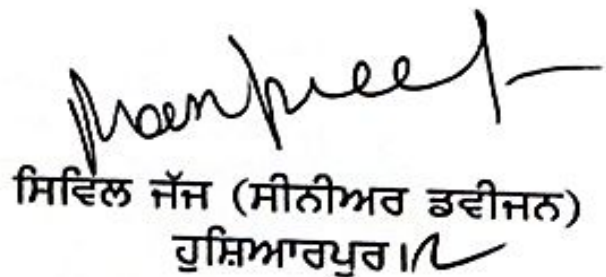 Manpreet
ਸਿਵਿਲ ਜੱਜ (ਸੀਨੀਅਰ ਡਵੀਜਨ)
ਹੁਸ਼ਿਆਰਪੁਰ।